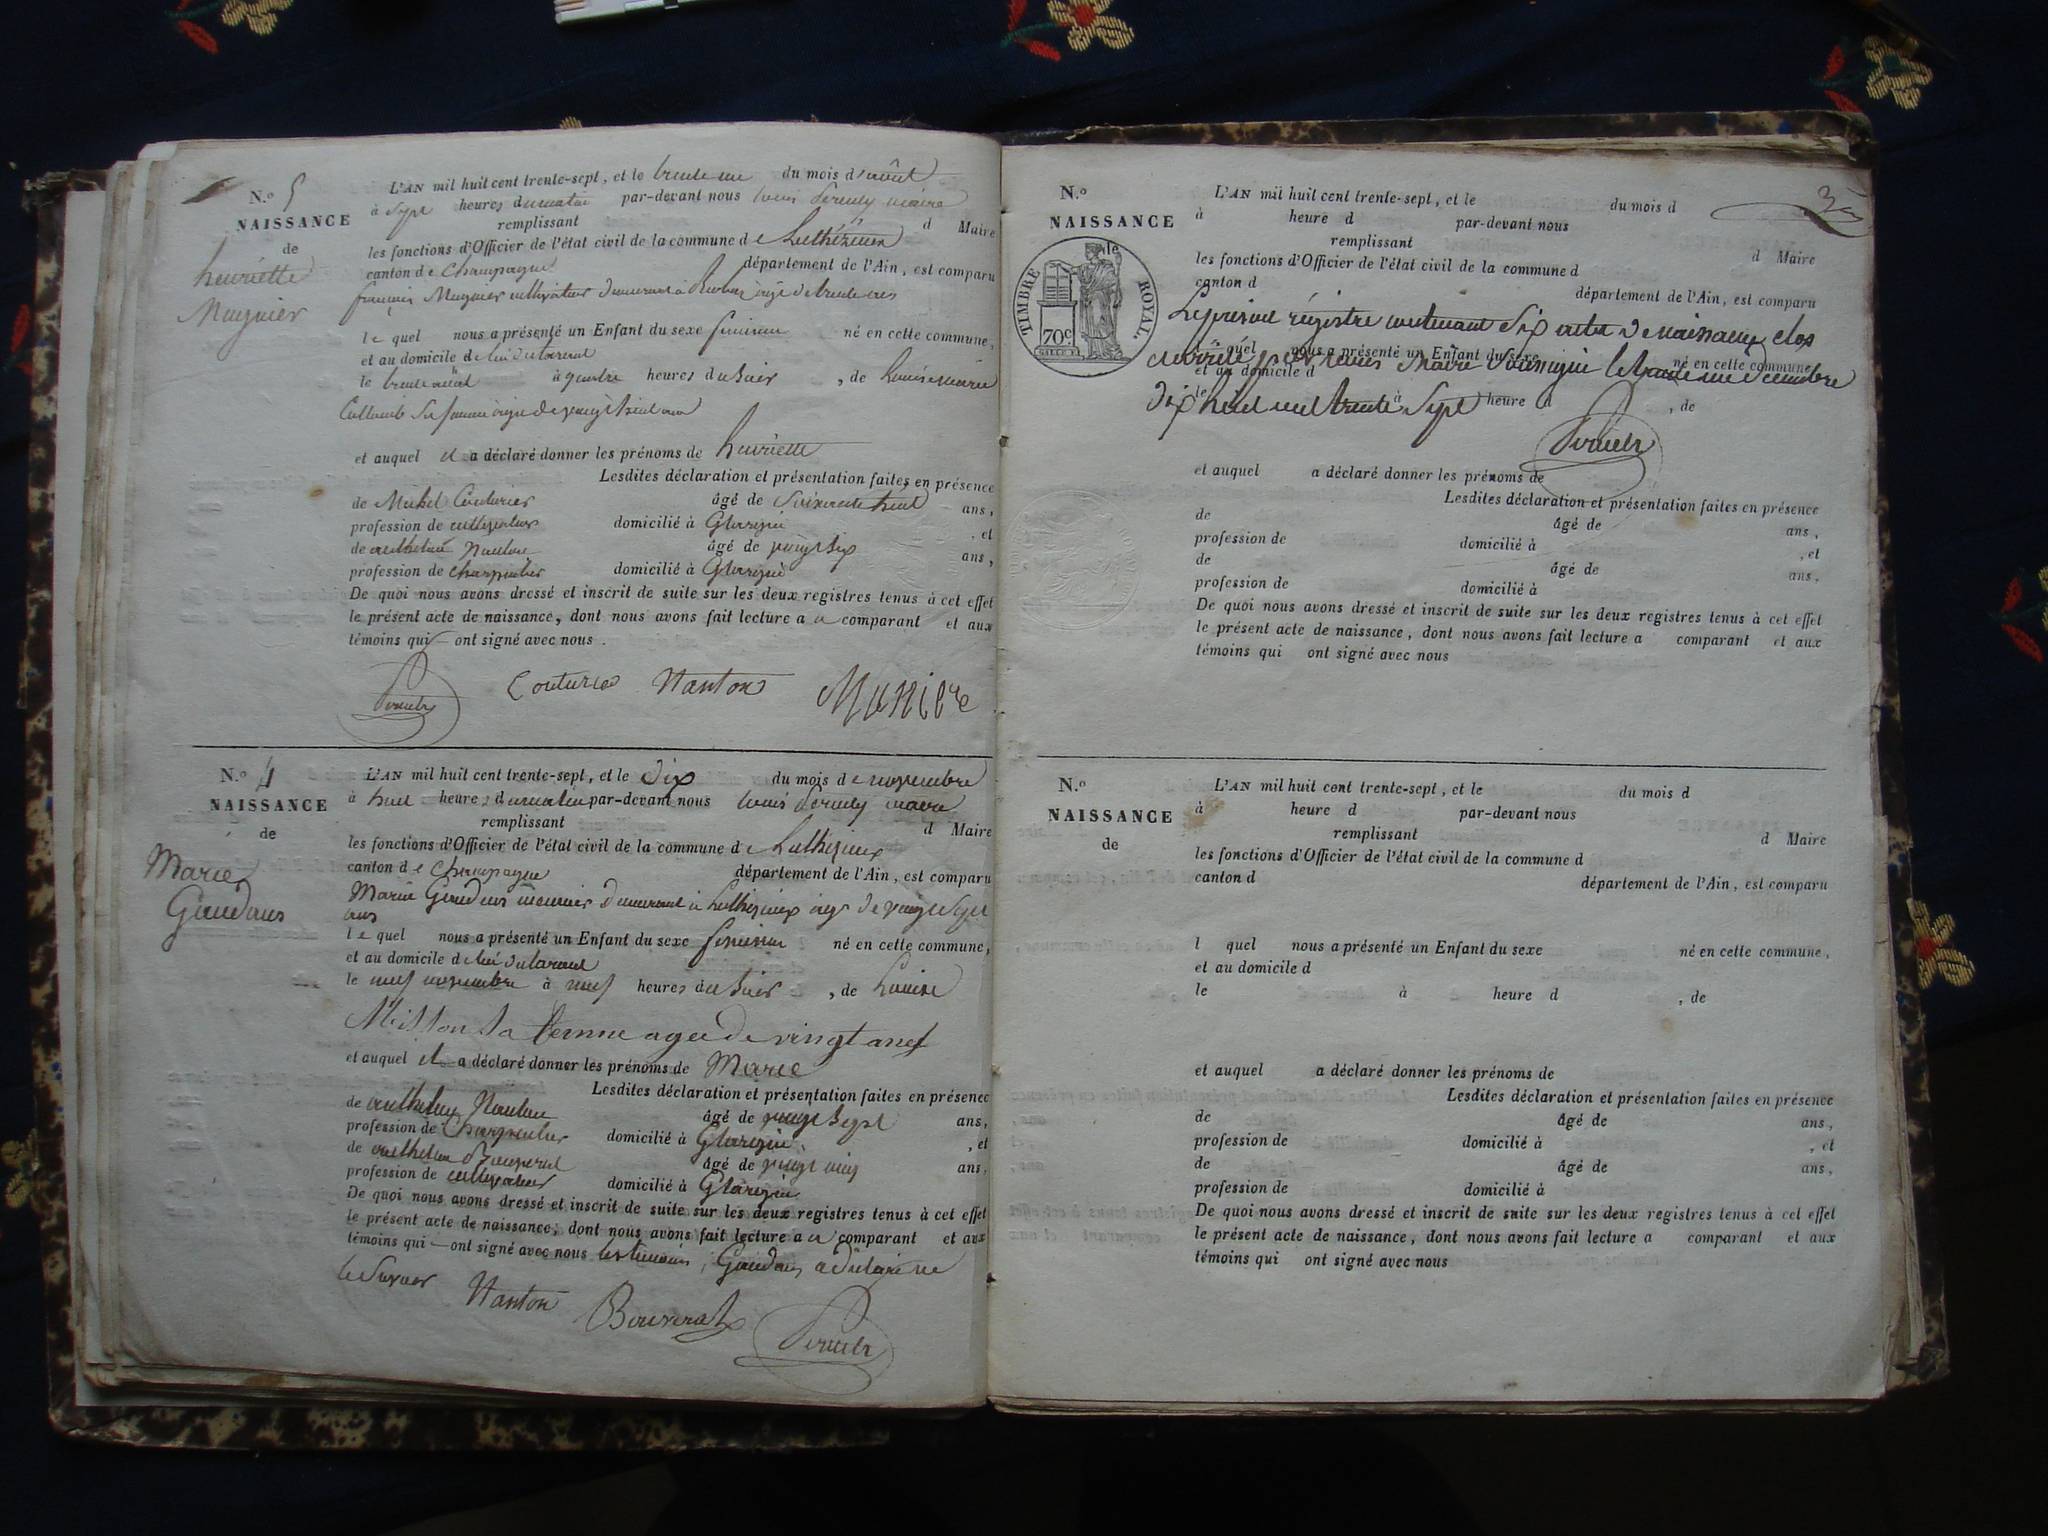 N.o 5
NAISSANCE
de
henriette
Mugnier
L'AN mil huit cent trente-sept, et le trente une du mois d'août
à Sept heures du matin par-devant nous Maire
remplissant d Maire
les fonctions d'Officier de l'état civil de la commune de
canton de Champagne département de l'Ain, est comparu
françois Mugnier cultivateur demeurant à âgé de trente
le quel nous a présenté un Enfant du sexe feminin né en cette commune,
et au domicile de lui déclarant
le trente août à quatre heures du Soir, de Louise marie
Sa femme âgée de vingt huit ans
et auquel il a déclaré donner les prénoms de henriette
Lesdites déclaration et présentation faites en présence
de Michel Couturier âgé de Soixante huit ans,
profession de cultivateur domicilié à , et
de anthelme Nanton âgé de vingt Six ans,
profession de Charpentier domicilié à
De quoi nous avons dressé et inscrit de suite sur les deux registres tenus à cet effet
le présent acte de naissance, dont nous avons fait lecture au comparant et aux
témoins qui ont signé avec nous.
Couturier Nanton
N.o 4
NAISSANCE
de
Marie
L'AN mil huit cent trente-sept, et le Dix du mois de novembre
à huit heures du matin par-devant nous maire
remplissant d Maire
les fonctions d'Officier de l'état civil de la commune de
canton de Champagne département de l'Ain, est comparu
demeurant à âgé de vingt sept
ans
le quel nous a présenté un Enfant du sexe feminin né en cette commune,
et au domicile de lui déclarant
le neuf novembre à neuf heures du Soir, de Louise
Misson Sa femme agée de vingt ans
et auquel il a déclaré donner les prénoms de Marie
Lesdites déclaration et présentation faites en présence
de anthelme Nanton âgé de vingt Sept ans,
profession de Charpentier domicilié à , et
de anthelme Bouverat âgé de vingt ans,
profession de cultivateur domicilié à
De quoi nous avons dressé et inscrit de suite sur les deux registres tenus à cet effet
le présent acte de naissance, dont nous avons fait lecture au comparant et aux
témoins qui ont signé avec nous les temoins, a déclaré ne
le Savoir Nanton Bouverat
N.o
NAISSANCE
TIMBRE ROYAL.
70c
L'AN mil huit cent trente-sept, et le du mois d
à heure d par-devant nous
remplissant d Maire
les fonctions d'Officier de l'état civil de la commune d
canton d département de l'Ain, est comparu
Le présent régistre contenant Six actes de naissance clos
l quel nous a présenté un Enfant du sexe né en cette commune,
et arrêté par nous Maire Soussigné le trente une decembre
et au domicile d
le à heure d , de
Dix huit cent trente Sept
et auquel a déclaré donner les prénoms de
Lesdites déclaration et présentation faites en présence
de âgé de ans,
profession de domicilié à , et
de âgé de ans,
profession de domicilié à
De quoi nous avons dressé et inscrit de suite sur les deux registres tenus à cet effet
le présent acte de naissance, dont nous avons fait lecture a comparant et aux
témoins qui ont signé avec nous
N.o
NAISSANCE
de
L'AN mil huit cent trente-sept, et le du mois d
à heure d par-devant nous
remplissant d Maire
les fonctions d'Officier de l'état civil de la commune d
canton d département de l'Ain, est comparu
l quel nous a présenté un Enfant du sexe né en cette commune,
et au domicile d
le à heure d , de
et auquel a déclaré donner les prénoms de
Lesdites déclaration et présentation faites en présence
de âgé de ans,
profession de domicilié à , et
de âgé de ans,
profession de domicilié à
De quoi nous avons dressé et inscrit de suite sur les deux registres tenus à cet effet
le présent acte de naissance, dont nous avons fait lecture a comparant et aux
témoins qui ont signé avec nous